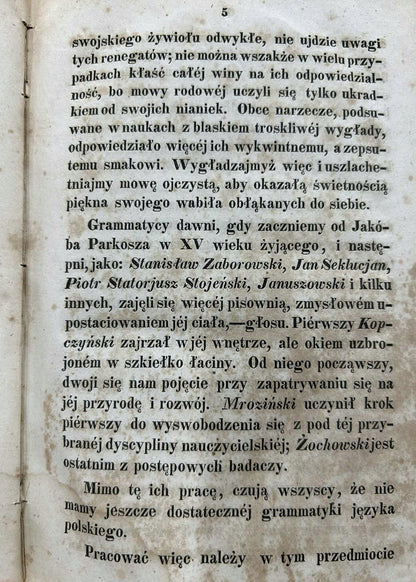 5
swojskiego żywiołu odwykłe, nie ujdzie uwagi
tych renegatów; nie można wszakże w wielu przy-
padkach kłaść całéj winy na ich odpowiedzial-
ność, bo mowy rodowéj uczyli się tylko ukrad-
kiem od swoich nianiek. Obce narzecze, podsu-
wane w naukach z blaskiem troskliwéj wygłady,
odpowiedziało więcéj ich wykwintnemu, a zepsu-
temu smakowi. Wygładzajmyż więc i uszlache-
tniajmy mowę ojczystą, aby okazałą świetnością
piękna swojego wabiła obłąkanych do siebie.
Grammatycy dawni, gdy zaczniemy od Jakó-
ba Parkosza w XV wieku żyjącego, i nastę-
pni, jako: Stanisław Zaborowski, Jan Seklucjan,
Piotr Statorjusz Stojeński, Januszowski i kilku
innych, zajęli się więcéj pisownią, zmysłowém u-
postaciowaniem jéj ciała,—głosu. Piérwszy Kop-
czyński zajrzał w jéj wnętrze, ale okiem uzbro-
joném w szkiełko łaciny. Od niego począwszy,
dwoji się nam pojęcie przy zapatrywaniu się na
jéj przyrodę i rozwój. Mroziński uczynił krok
piérwszy do wyswobodzenia się z pod téj przy-
branéj dyscypliny nauczycielskiéj; Żochowski jest
ostatnim z postępowych badaczy.
Mimo tę ich pracę, czują wszyscy, że nie
mamy jeszcze dostatecznéj grammatyki języka
polskiego.
Pracować więc należy w tym przedmiocie